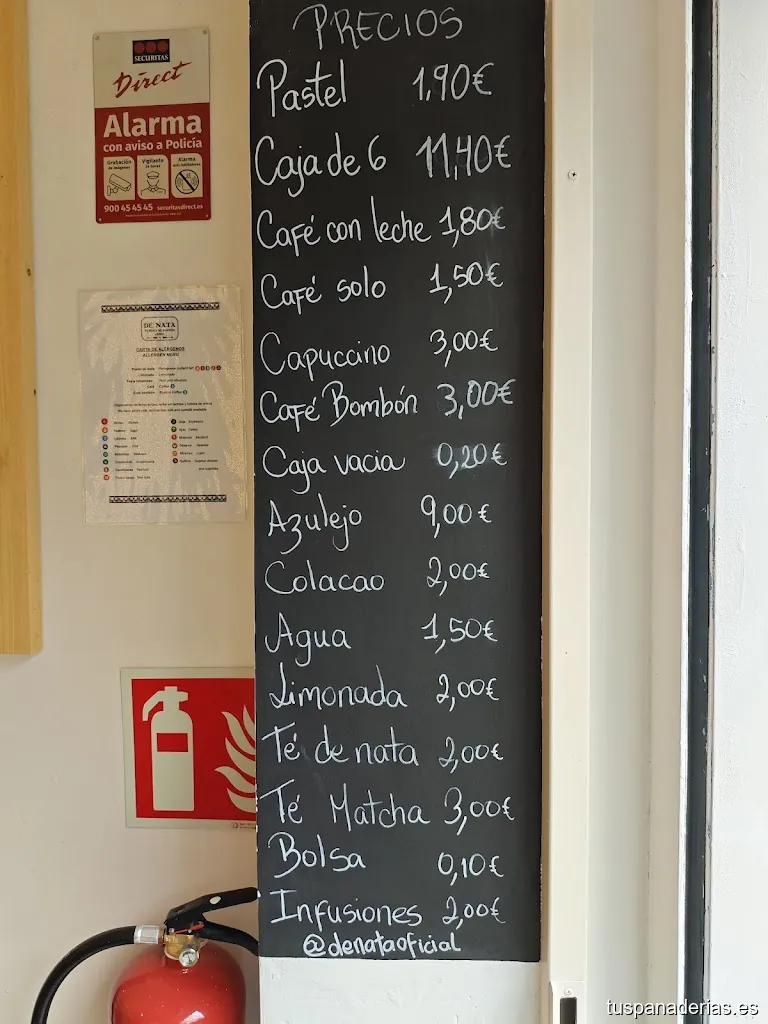 PRECIOS
Pastel 1,90€
Caja de 6 11,40€
Café con leche 1,80€
Café solo 1,50€
Capuccino 3,00€
Café Bombón 3,00€
Caja vacia 0,20€
Azulejo 9,00€
Colacao 2,00€
Agua 1,50€
Limonada 2,00€
Té de nata 2,00€
Té Matcha 3,00€
Bolsa 0,10€
Infusiones 2,00€
@denataoficial
SECURITAS
Direct
Alarma
con aviso a Policía
Grabación de imágenes
Vigilante
Alarma
900 45 45 45 securitasdirect.es
DE NATA
CARTA DE ALÉRGENOS
ALLERGEN MENU
tuspanaderias.es